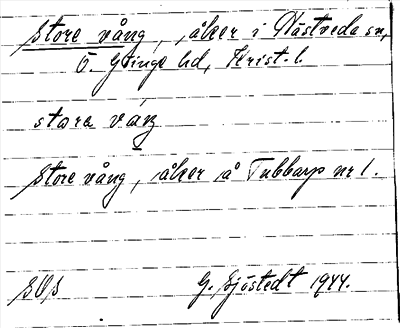 Store vång, åker i Nästveda sn,
Ö. Göinge hd, Krist. l.
stora váŋ
Store vång, åker å Tubbarp nr 1.
G. Sjöstedt 1944.